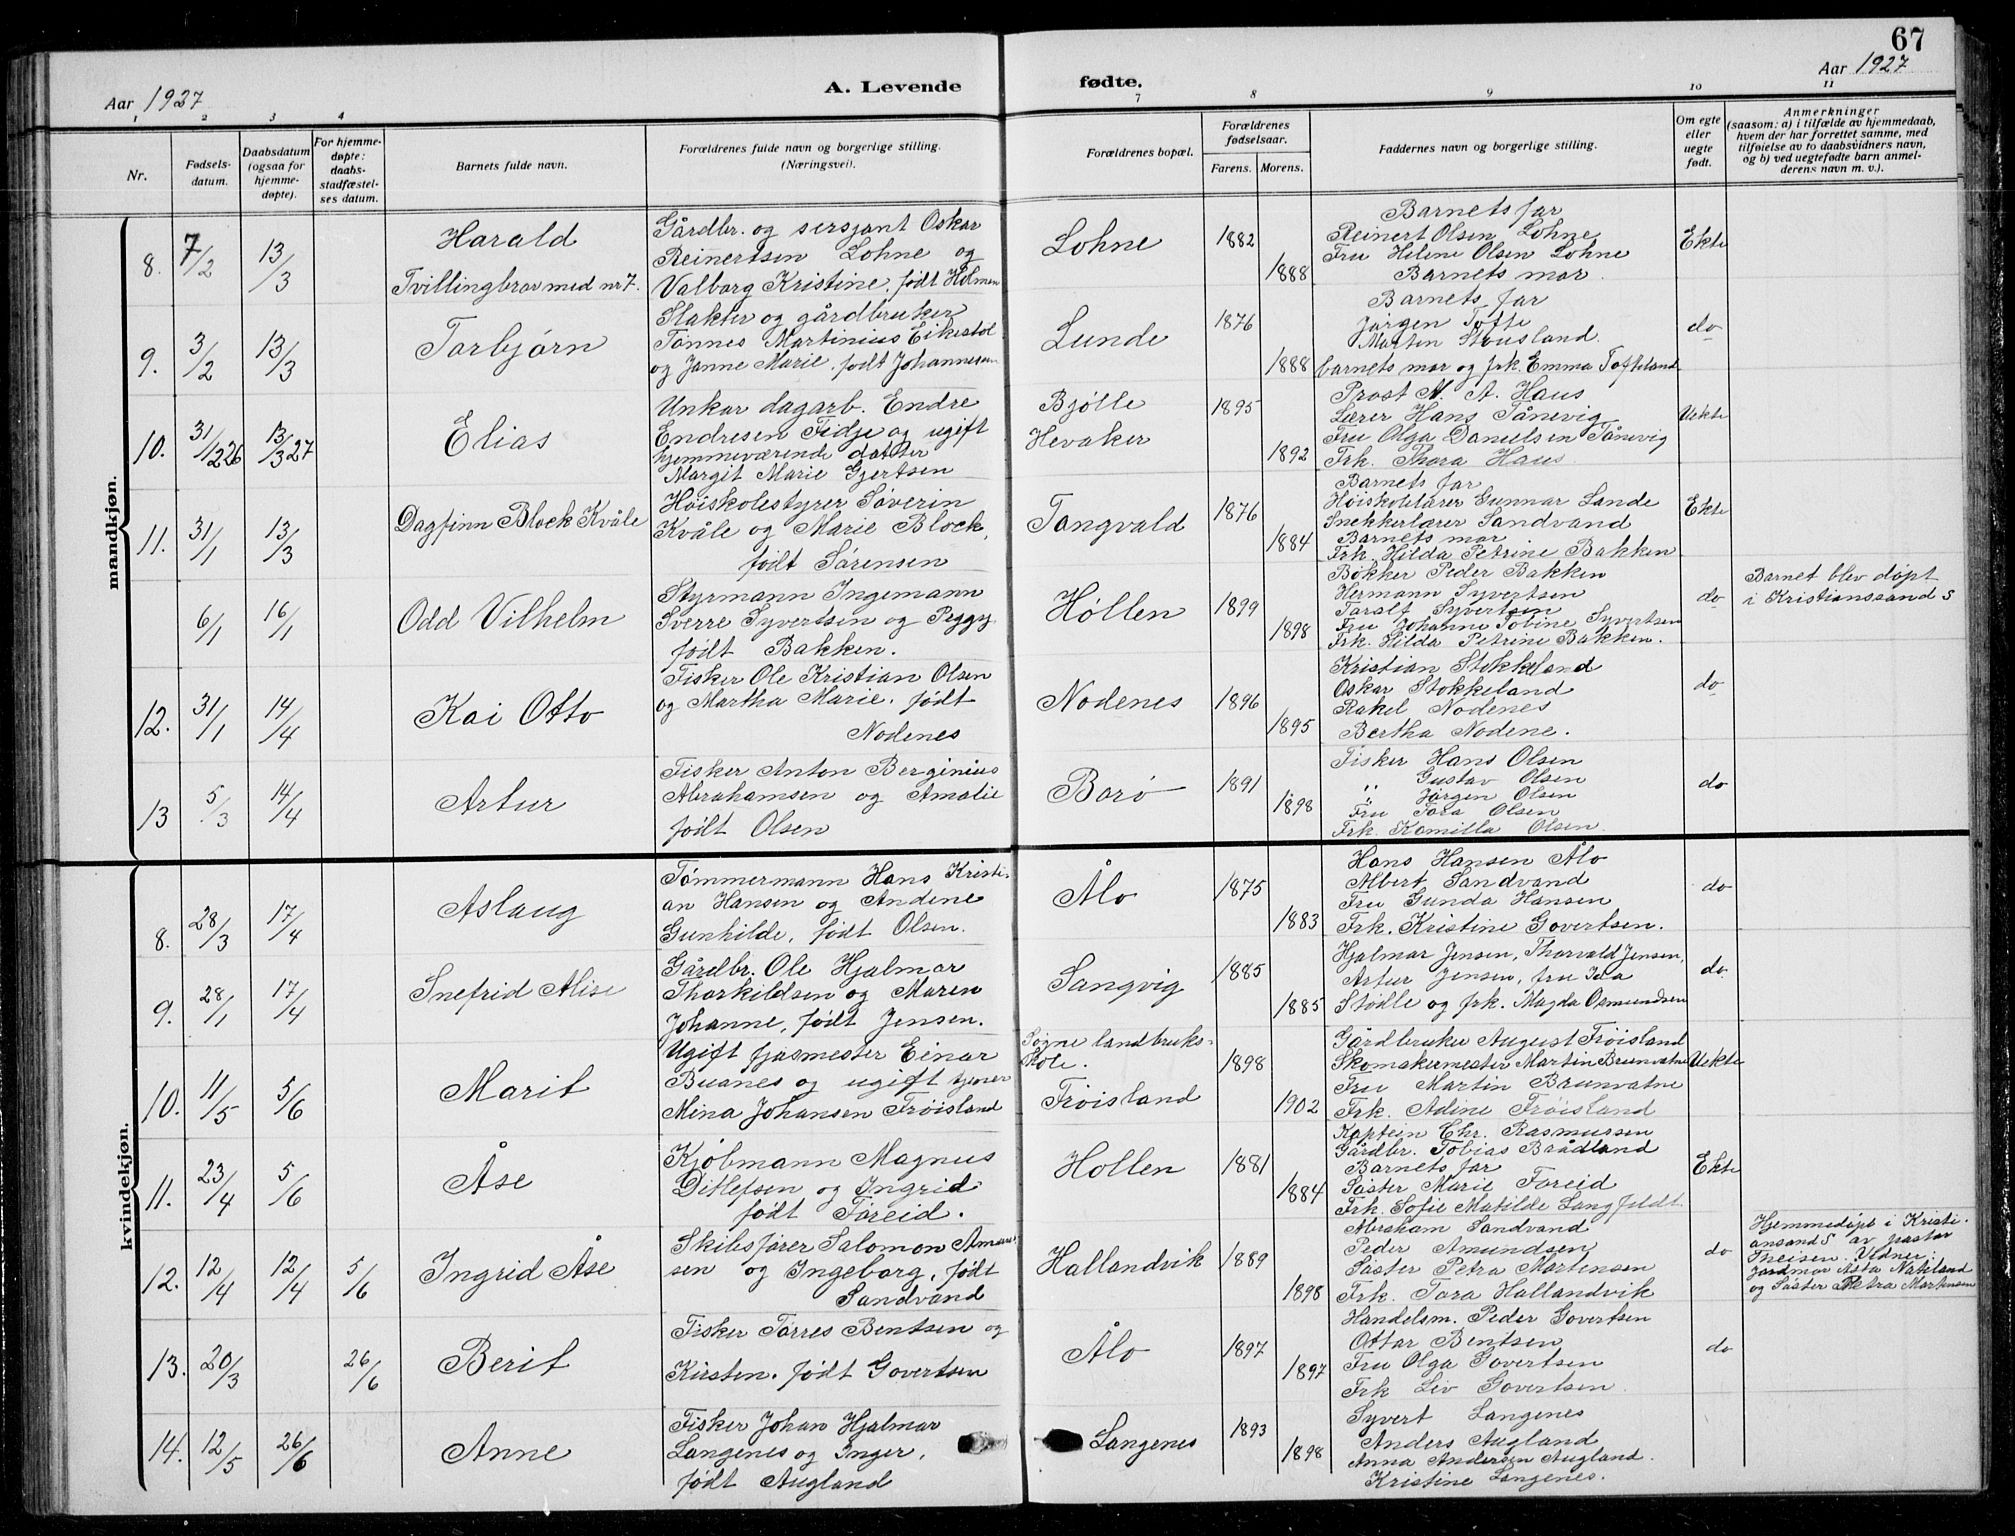 67
Aar 1927
A. Levende
fødte.
Aar 1927
1 2 3 4 7 8 9 10 11
Nr.
Fødsels-
datum.
Daabsdatum
(ogsaa for
hjemme-
døpte).
For hjemme-
døpte:
daabs-
stadfæstel-
ses datum.
Barnets fulde navn.
Forældrenes fulde navn og borgerlige stilling.
(Næringsvei).
Forældrenes bopæl.
Forældrenes
fødselsaar.
Farens. Morens.
Faddernes navn og borgerlige stilling.
Om egte
eller
uegte
født.
Anmerkninger
(saasom: a) i tilfælde av hjemmedaab,
hvem der har forrettet samme, med
tilføielse av to daabsvidners navn,
og b) ved uegtefødte barn anmel-
derens navn m. v.).
mandkjøn.
8. 7/2 13/3
Harald
Tvillingbror med nr 7.
Gårdbr. og sersjant Oskar
Reinertsen Lohne og
Valborg Kristine, født Holmen
Lohne
1882
1888
Barnets far
Reinert Olsen Lohne
Fru Helene Olsen Lohne
Barnets mor.
Ekte
9. 3/2 13/3
Torbjørn
Slakter og gårdbruker
Tønnes Martinius Eikestøl
og Janne Marie, født Johannesen
Lunde
1876
1888
Barnets far
Jørgen Tofte
Morten Stousland.
barnets mor og frk. Emma Tofteland
do
10. 31/12 26 13/3 27
Elias
Unkar dagarb. Endre
Endresen Fidje og ugift
hjemmeværende datter
Margit Marie Gjertsen
Bjølle
Hevaker
1895
1892
Prost N. A. Haus
Lærer Hans Tånevig
Fru Olga Danielsen Tånevig
Frk. Thora Haus
Uekte
11. 31/1 13/3
Dagfinn Block Kvåle
Høiskolestyrer Søverin
Kvåle og Marie Block,
født Sørensen
Tangvald
1876
1884
Barnets far
Høiskolelærer Gunnar Lande
Snekkerlærer Sandvand
Barnets mor
Frk. Hilda Petrine Bakken
Ekte
6/1 16/1
Odd Vilhelm
Styrmann Ingemann
Sverre Syvertsen og Peggy
født Bakken.
Høllen
1899
1898
Bøkker Peder Bakken
Hermann Syvertsen
Taralf Syvertsen
Fru Johanne Tobine Syvertsen
Frk. Hilda Petrine Bakken.
do
Barnet blev døpt
i Kristianssand S
12. 31/1 14/4
Kai Otto
Fisker Ole Kristian Olsen
og Martha Marie, født
Nodenes
Nodenes
1896
1895
Kristian Stokkeland
Oskar Stokkeland
Rakel Nodenes
Bertha Nodene.
do
13 5/3 14/4
Artur
Fisker Anton Berginius
Abrahamsen og Amalie
født Olsen
Borø
1891
1898
Fisker Hans Olsen
Gustav Olsen
,, Jørgen Olsen
Fru Tora Olsen
Frk. Kamilla Olsen.
do
kvindekjøn.
8. 28/3 17/4
Aslaug
Tømmermann Hans Kristi-
an Hansen og Andene
Gunhilde, født Olsen.
Ålo
1875
1883
Hans Hansen Ålo
Albert Sandvand
Fru Gunda Hansen
Frk. Kristine Govertsen.
do
9. 28/1 17/4
Snefrid Alise
Gårdbr. Ole Hjalmar
Thorkildsen og Maren
Johanne, født Jensen.
Sangvig
1885
1885
Hjalmar Jensen, Thorvald Jensen,
Artur Jensen, fru Ida
Stølle og frk. Magda Osmundsen
do
10. 11/5 5/6
Marit
Ugift fjøsmester Einar
Buanes og ugift tjener
Mina Johansen Frøisland
Søgne landbruks-
skole.
Frøisland
1898
1902
Gårdbruker August Frøisland
Skomakermester Martin Brunvatne
Fru Martin Brunvatne
Frk. Adine Frøisland
Uekte
11. 23/4 5/6
Åse
Kjøbmann Magnus
Ditlefsen og Ingrid
født Føreid.
Høllen
1881
1884
Kaptein Chr. Rasmussen
Gårdbr. Tobias Baådland
Barnets far
Søster Marie Føreid
Frk. Sofie Matilde Langfeldt.
Ekte
12. 12/4 12/4 5/6
Ingrid Åse
Skibsfører Salomon Amund-
sen og Ingeborg, født
Sandvand
Hallandvik
1889
1898
Abraham Sandvand
Peder Amundsen
Søster Petra Martensen
Frk. Tora Hallandvik
do
Hjemmedøpt i Kristi-
ansand S av pastor
Theisen. Vidner:
jordmor Asta Nateland
og Søster Petra Martensen
13. 20/3 26/6
Berit
Fisker Tørres Bentsen og
Kirsten, født Govertsen
Ålo
1897
1897
Handelsm. Peder Govertsen
Ottar Bentsen
Fru Olga Govertsen
Frk Liv Govertsen.
do
14. 12/5 26/6
Anne
Fisker Johan Hjalmar
Langenes og Inger,
født Augland
Langenes
1893
1898
Syvert Langenes
Anders Augland
Anna Andersen Augland.
Kristine Langenes.